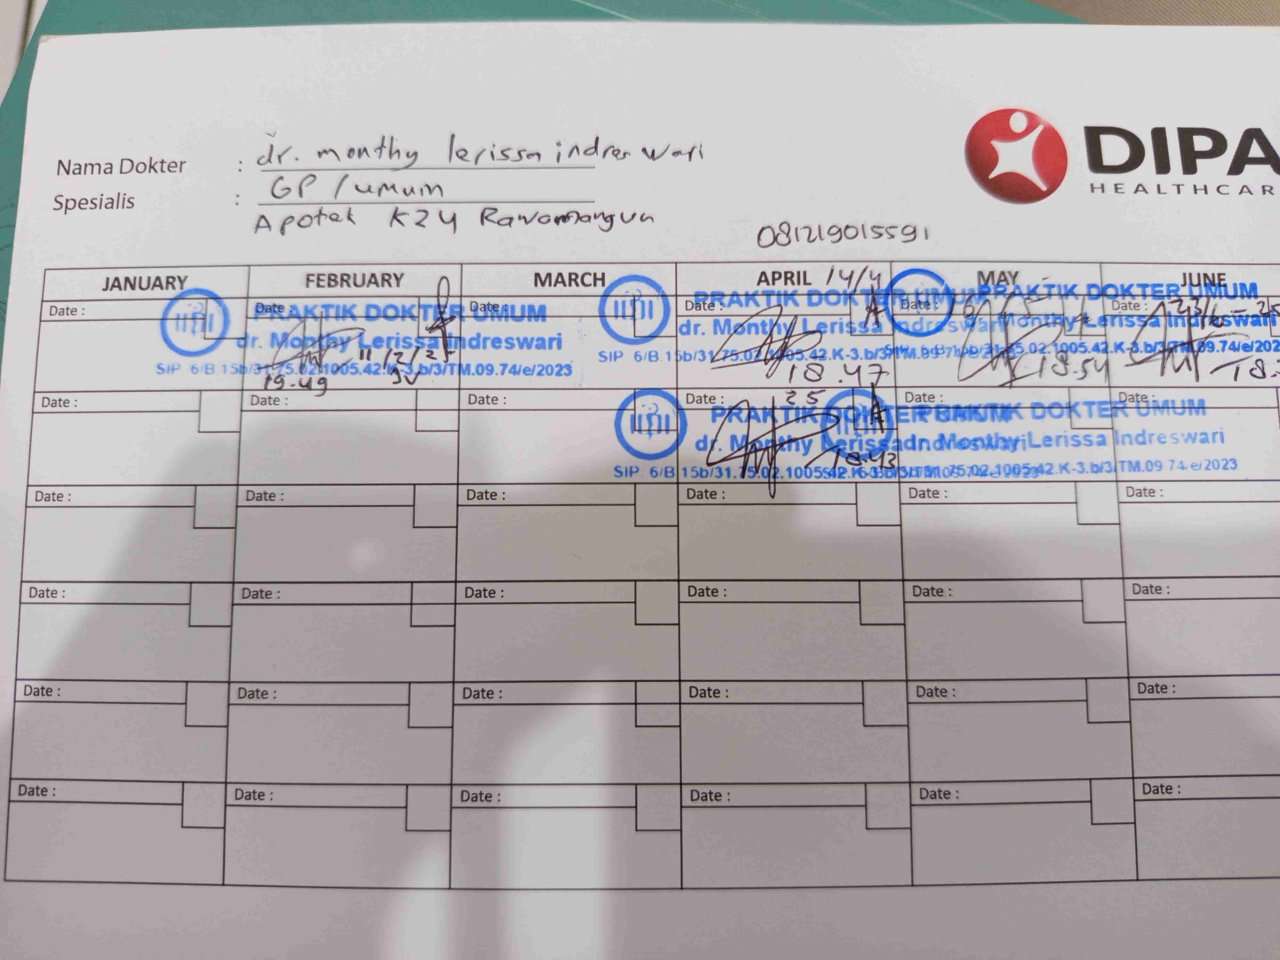 Nama Dokter : dr. monthy lerissa indreswari
Spesialis : GP / umum
Apotek K24 Rawamangun
081219015591
DIPA
HEALTHCAR
JANUARY FEBRUARY MARCH APRIL 14/4 MAY JUNE
Date : Date Date : Date : Date : Date :
PRAKTIK DOKTER UMUM
dr. Monthy Lerissa Indreswari
SIP 6/B 15b/31.75.02.1005.42.K-3.b/3/TM.09.74/e/2023
11/2/25
19.49
PRAKTIK DOKTER UMUM
dr. Monthy Lerissa Indreswari
SIP 6/B 15b/31.75.02.1005.42.K-3.b/3/TM.09.74/e/2023
18.47
PRAKTIK DOKTER UMUM
Monthy Lerissa Indreswari
.02.1005.42.K-3.b/3/TM.09.74/e/202
18.54
18.
Date : Date : Date : Date : Date :
25
PRAKTIK DOKTER UMUM
dr. Monthy Lerissa Indreswari
SIP 6/B 15b/31.75.02.1005.42.K-3.b/3/TM
18.43
PRAKTIK DOKTER UMUM
Monthy Lerissa Indreswari
75.02.1005.42.K-3.b/3/TM.09 74/e/2023
Date : Date : Date : Date : Date : Date :
Date : Date : Date : Date : Date : Date :
Date : Date : Date : Date : Date : Date :
Date : Date : Date : Date : Date : Date :